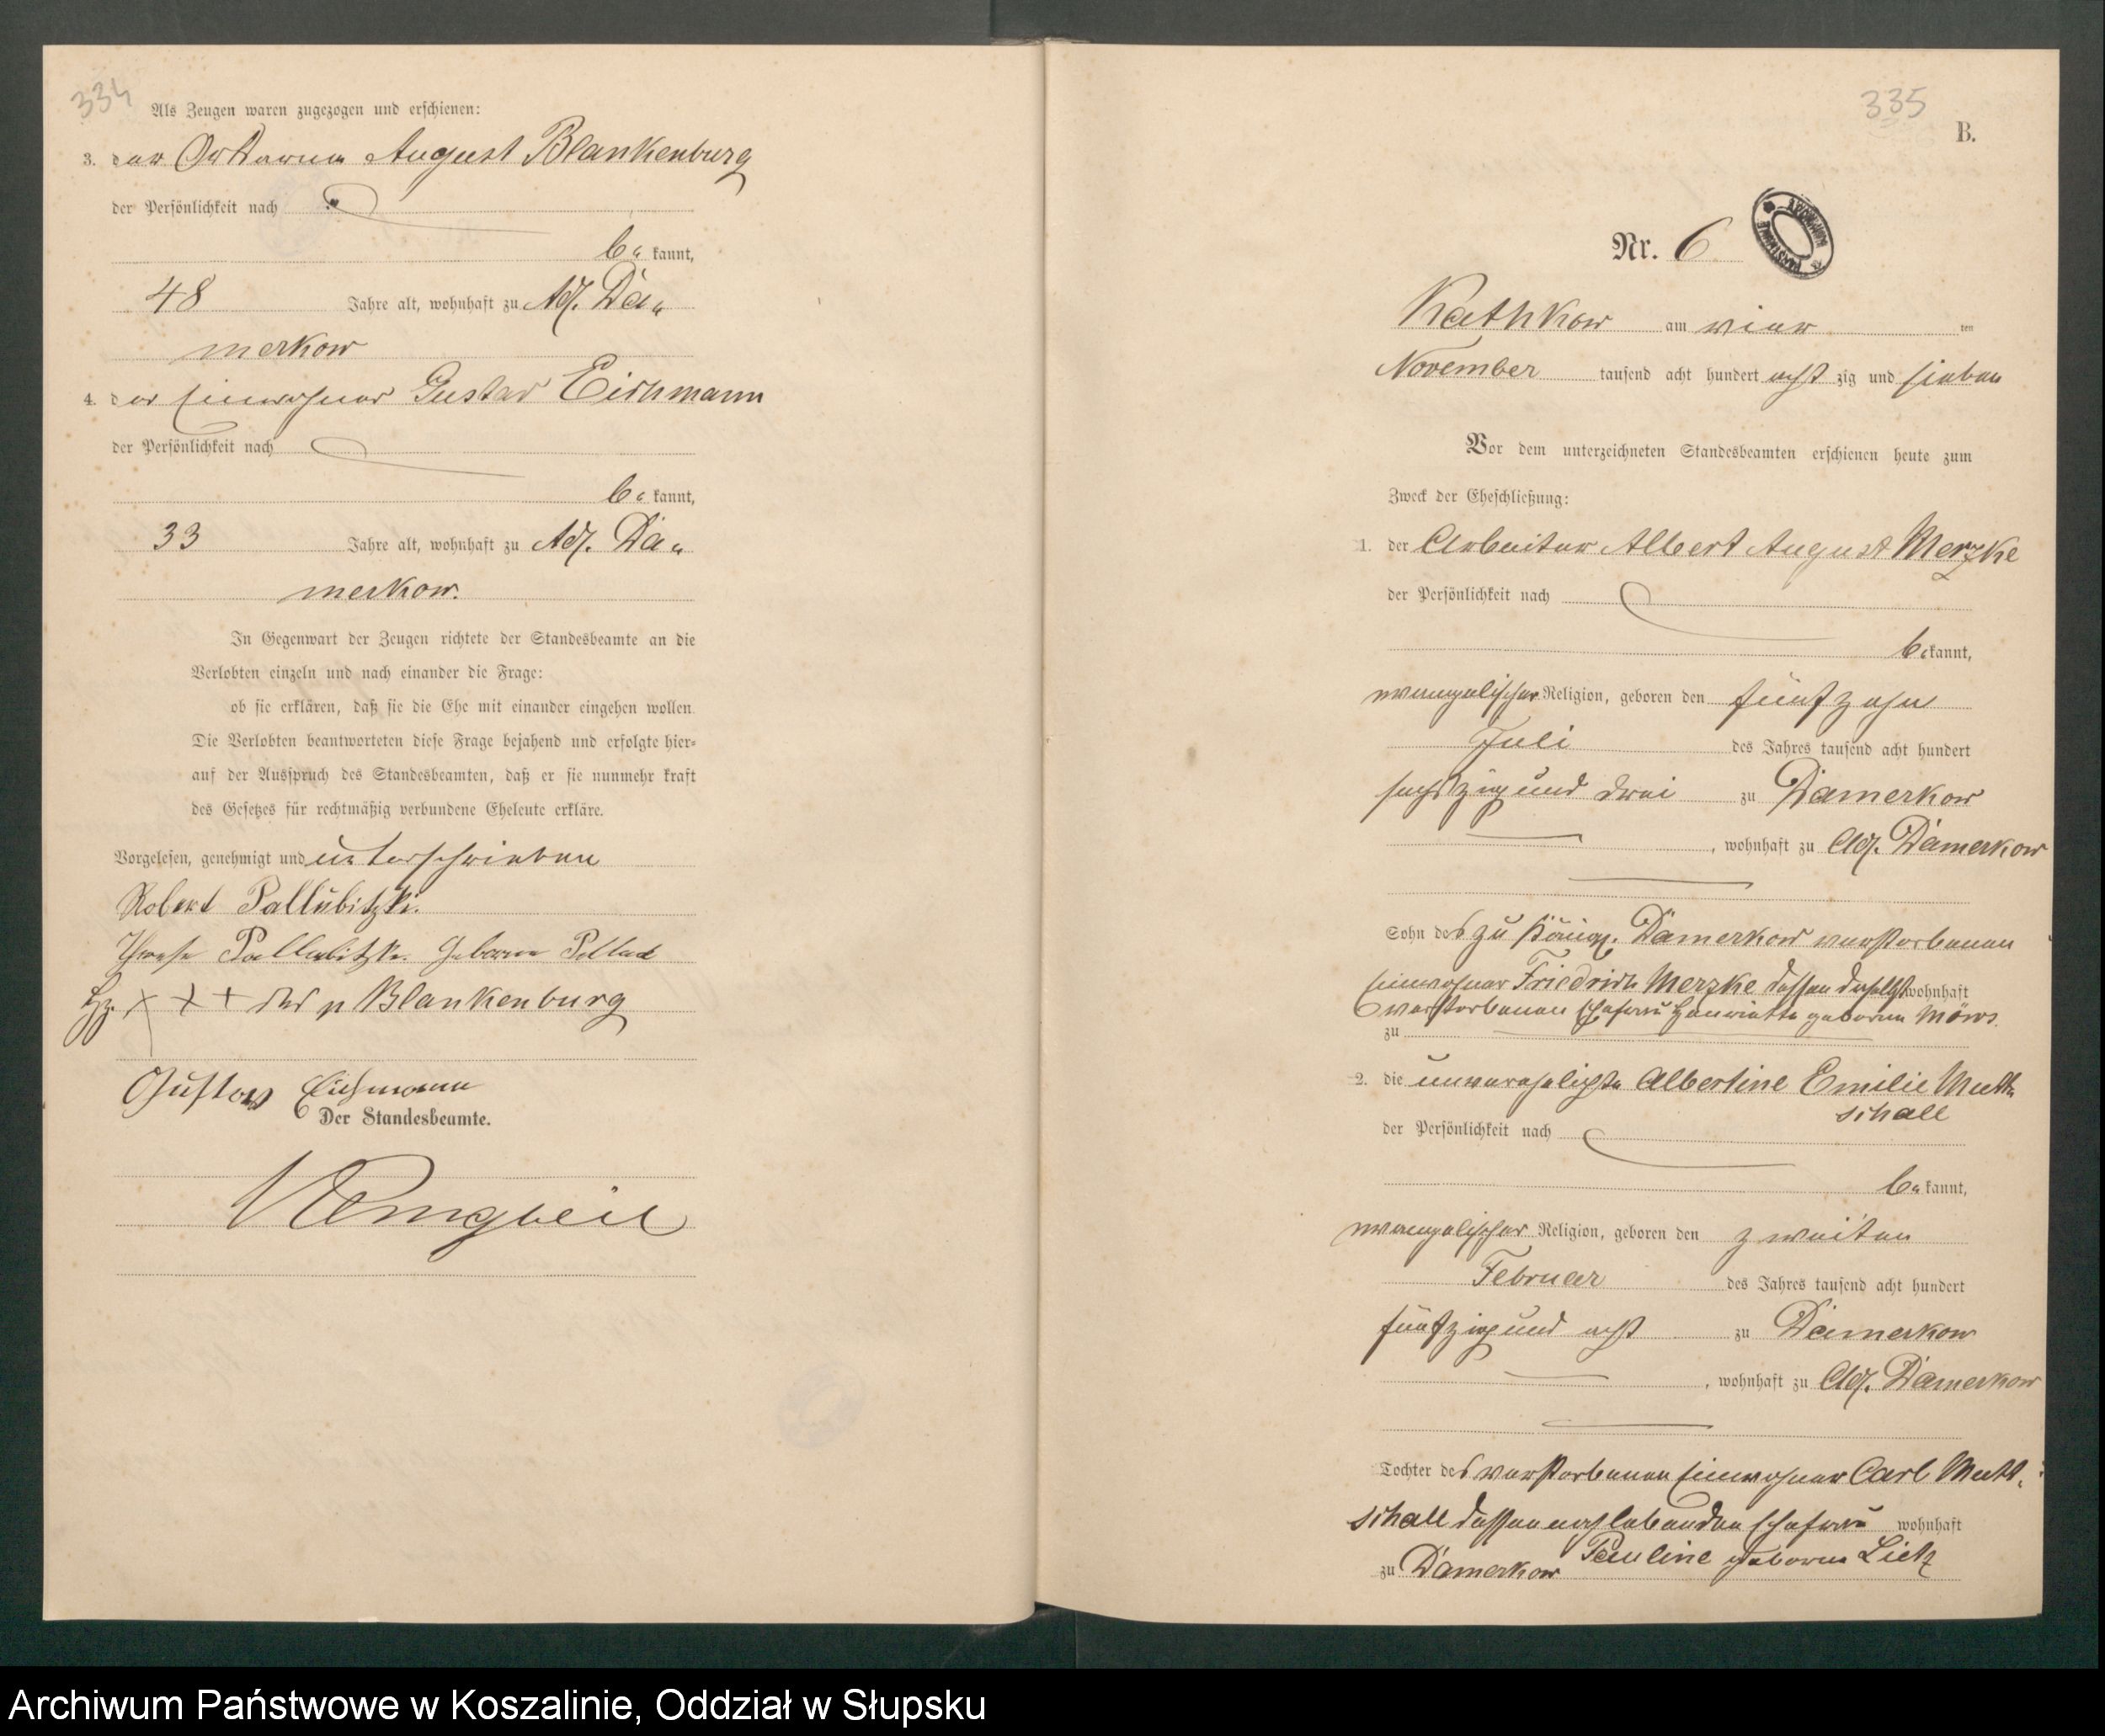 334
Als Zeugen waren zugezogen und erschienen:
3. der August Blankenburg
der Persönlichkeit nach
be kannt,
48 Jahre alt, wohnhaft zu Adl. Da-
merkow
4. der Einwohner Gustav Eichmann
der Persönlichkeit nach
be kannt,
33 Jahre alt, wohnhaft zu Adl. Da-
merkow.
In Gegenwart der Zeugen richtete der Standesbeamte an die
Verlobten einzeln und nach einander die Frage:
ob sie erklären, daß sie die Ehe mit einander eingehen wollen.
Die Verlobten beantworteten diese Frage bejahend und erfolgte hier-
auf der Ausspruch des Standesbeamten, daß er sie nunmehr kraft
des Gesetzes für rechtmäßig verbundene Eheleute erkläre.
Vorgelesen, genehmigt und unterschrieben
Robert Pallubitzki.
Pallubitzki geborene
Hz. + + + des p Blankenburg
Gustav Eichmann
Der Standesbeamte.
335
B.
Nr. 6
Kathkow am vier ten
November tausend acht hundert acht zig und sieben
Vor dem unterzeichneten Standesbeamten erschienen heute zum
Zweck der Eheschließung:
1. der Arbeiter Albert August Merzke
der Persönlichkeit nach
be kannt,
evangelischer Religion, geboren den fünfzehn
Juli des Jahres tausend acht hundert
sechszig und drei zu Damerkow
, wohnhaft zu Adl. Damerkow
Sohn des zu Königl. Damerkow verstorbenen
Einwohner Friedrich Merzke dessen daselbst wohnhaft
verstorbenen Ehefrau Henriette geborne Möws
zu
2. die unverehelichte Albertine Emilie Mutt-
schall
der Persönlichkeit nach
be kannt,
evangelischer Religion, geboren den zweiten
Februar des Jahres tausend acht hundert
fünfzig und acht zu Damerkow
, wohnhaft zu Adl. Damerkow
Tochter des verstorbenen Einwohner Carl Mutt-
schall dessen noch lebenden Ehefrau wohnhaft
zu Damerkow Pauline geborne Lietz
Archiwum Państwowe w Koszalinie, Oddział w Słupsku